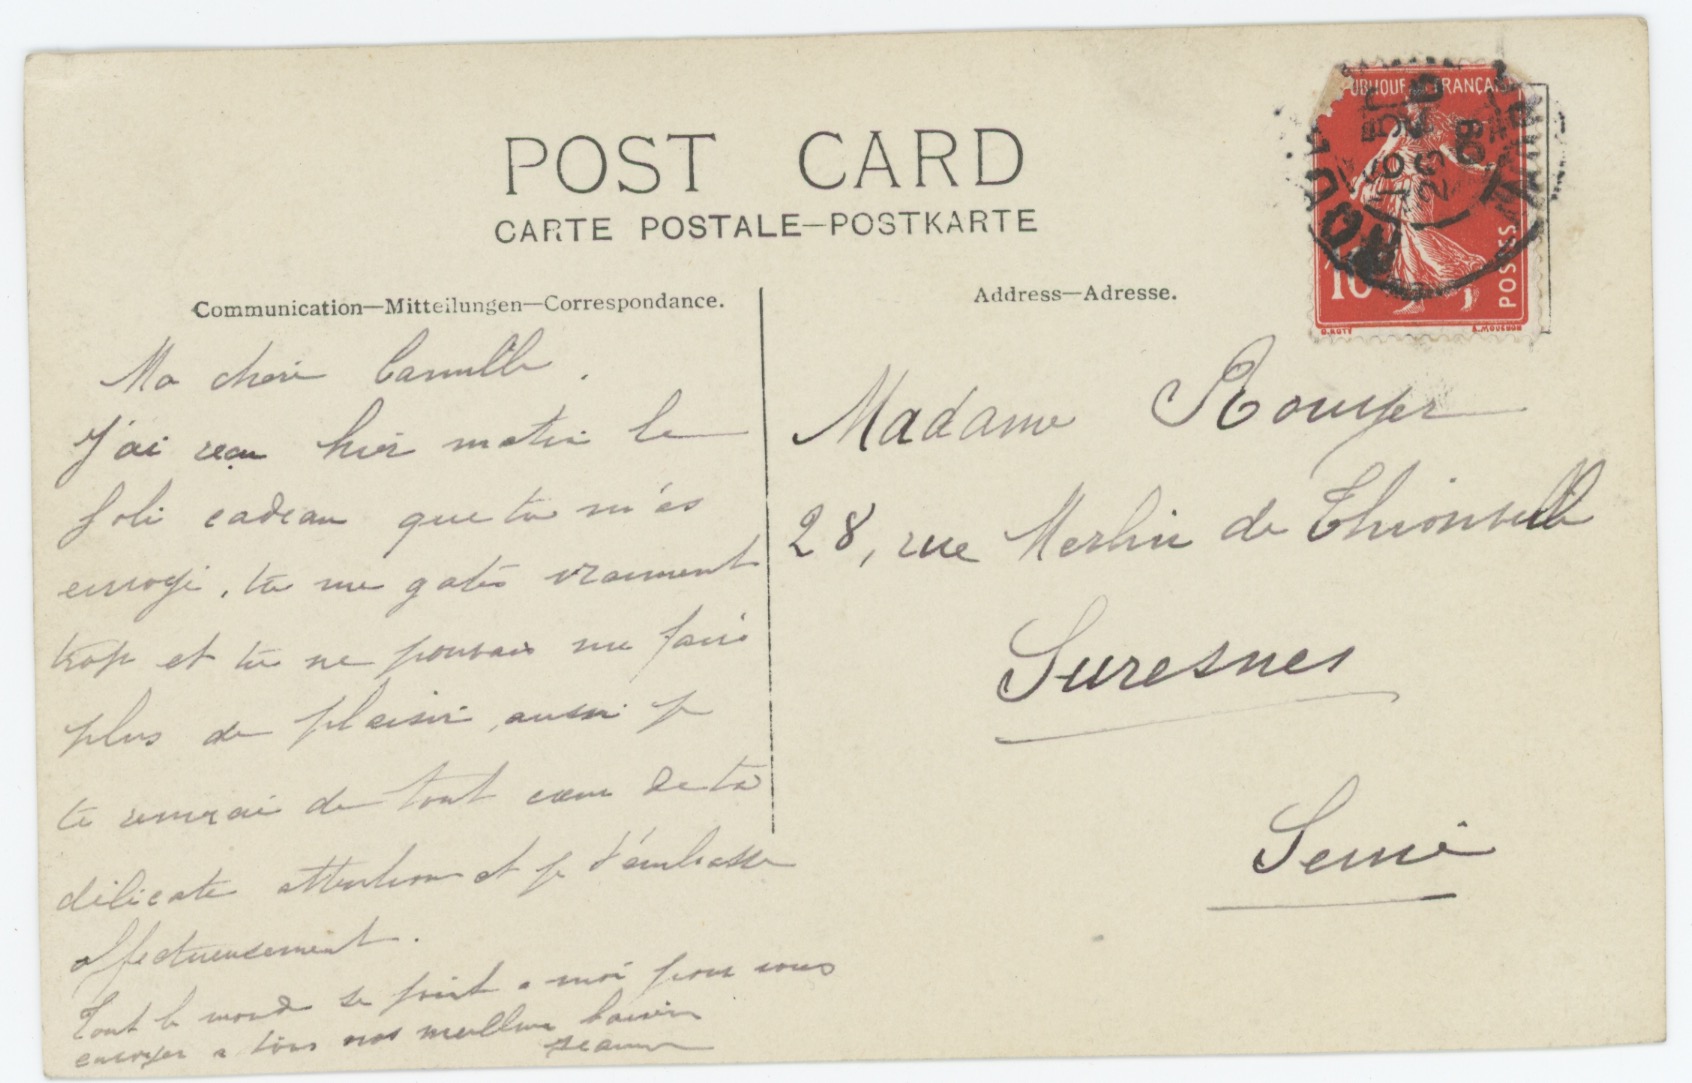 POST CARD
CARTE POSTALE—POSTKARTE
Communication—Mitteilungen—Correspondance.
Address—Adresse.
Ma chère Camille.
J'ai reçu hier matin le
joli cadeau que tu m'as
envoyé, tu me gates vraiment
trop et tu ne pouvais me faire
plus de plaisir, aussi je
te remercie de tout cœur de ta
délicate attention et je t'embrasse
affectueusement.
Tout le monde se joint a moi pour vous
envoyer a tous nos meilleurs baisers
Jeanne
Madame Rouyer
28, rue Merlin de Thionville
Suresnes
Seine
PUBLIQUE FRANÇAI
10
POSTES
O. ROTY
E. MOUCHON
09